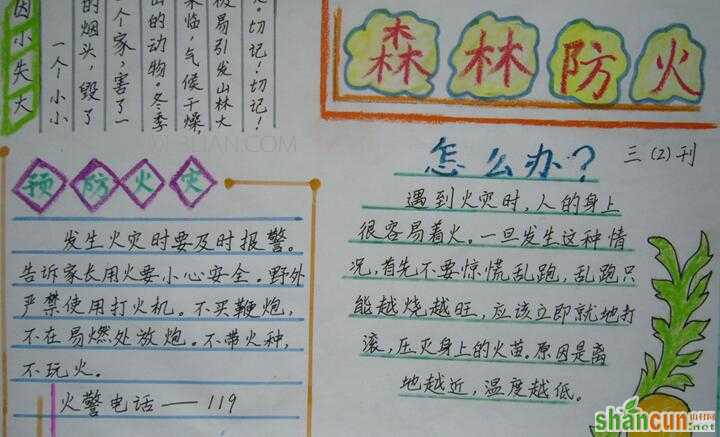 因小失大
一个小小
的烟头，毁了
一个家，害了一
山的动物。冬季
来临，气候干燥，
极易引发山林大
火。切记！切记！
森林防火
三（2）刊
预防火灾
发生火灾时要及时报警。
告诉家长用火要小心安全。野外
严禁使用打火机。不买鞭炮，
不在易燃处放炮。不带火种，
不玩火。
火警电话——119
怎么办？
遇到火灾时，人的身上
很容易着火。一旦发生这种情
况，首先不要惊慌乱跑，乱跑只
能越烧越旺，应该立即就地打
滚，压灭身上的火苗。原因是离
地越近，温度越低。
shancun
山村网
.net